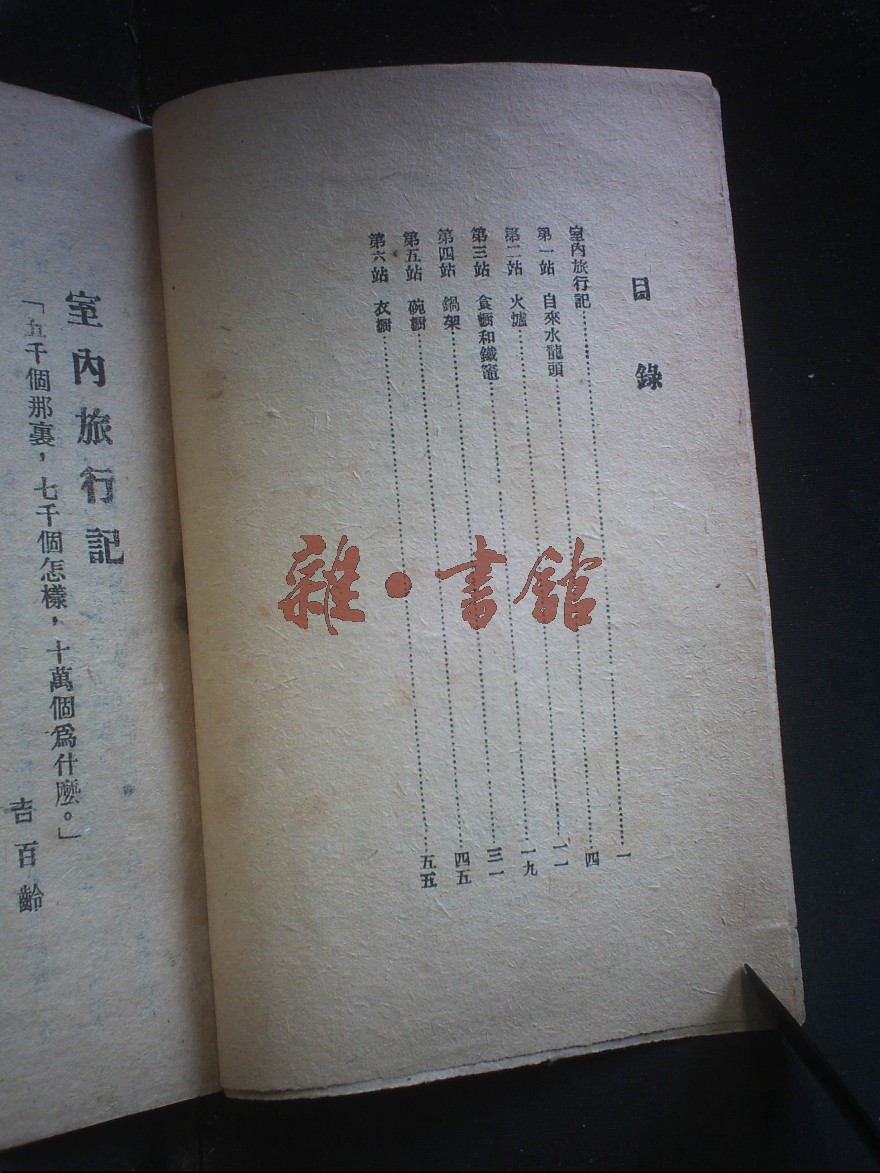 目錄
室內旅行記……一
第一站 自來水龍頭……四
第二站 火爐……一一
第三站 食櫥和鐵竈……一九
第四站 鍋架……三一
第五站 碗櫥……四五
第六站 衣櫥……五五
室內旅行記
「五千個那裏，七千個怎樣，十萬個爲什麼。」
吉百齡
雜·書館